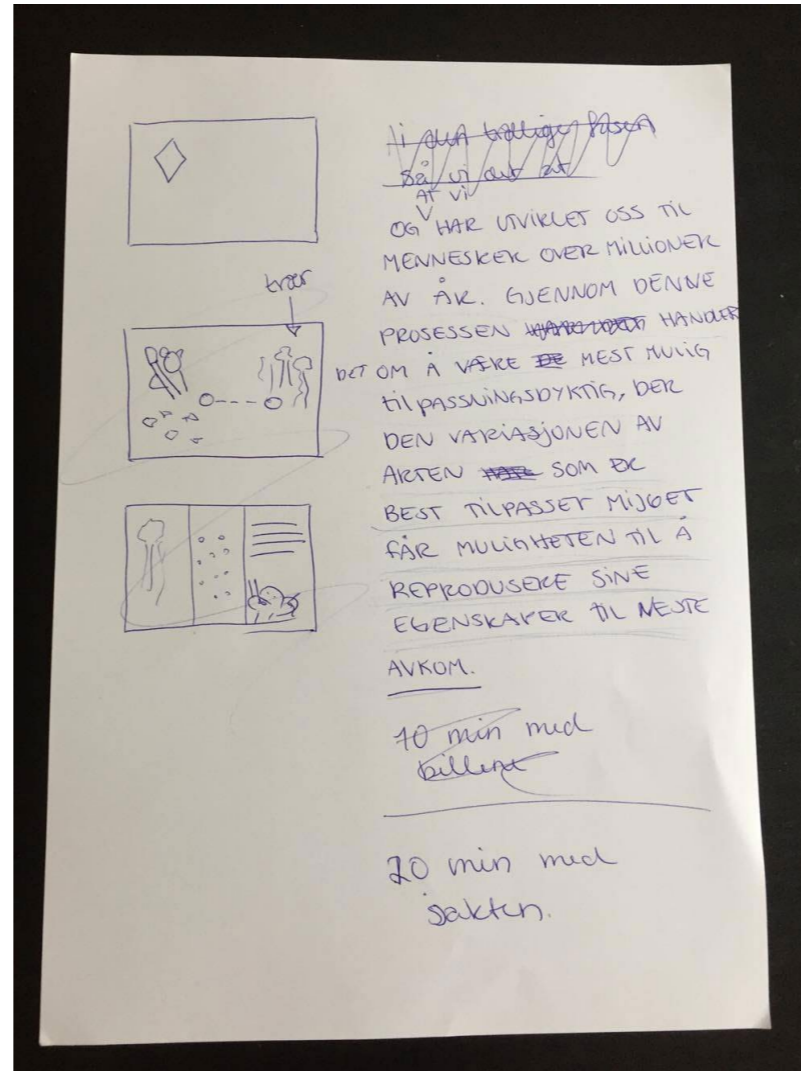 i den tidlige fasen
så vi det at
AT VI
OG HAR UTVIKLET OSS TIL
MENNESKER OVER MILLIONER
AV ÅR. GJENNOM DENNE
PROSESSEN HANDLER
DET OM Å VÆRE MEST MULIG
TILPASSNINGSDYKTIG, DER
DEN VARIASJONEN AV
ARTEN SOM ER
BEST TILPASSET MILJØET
FÅR MULIGHETEN TIL Å
REPRODUSERE SINE
EGENSKAPER TIL NESTE
AVKOM.
trær
10 min med
billene
20 min med
sakten.